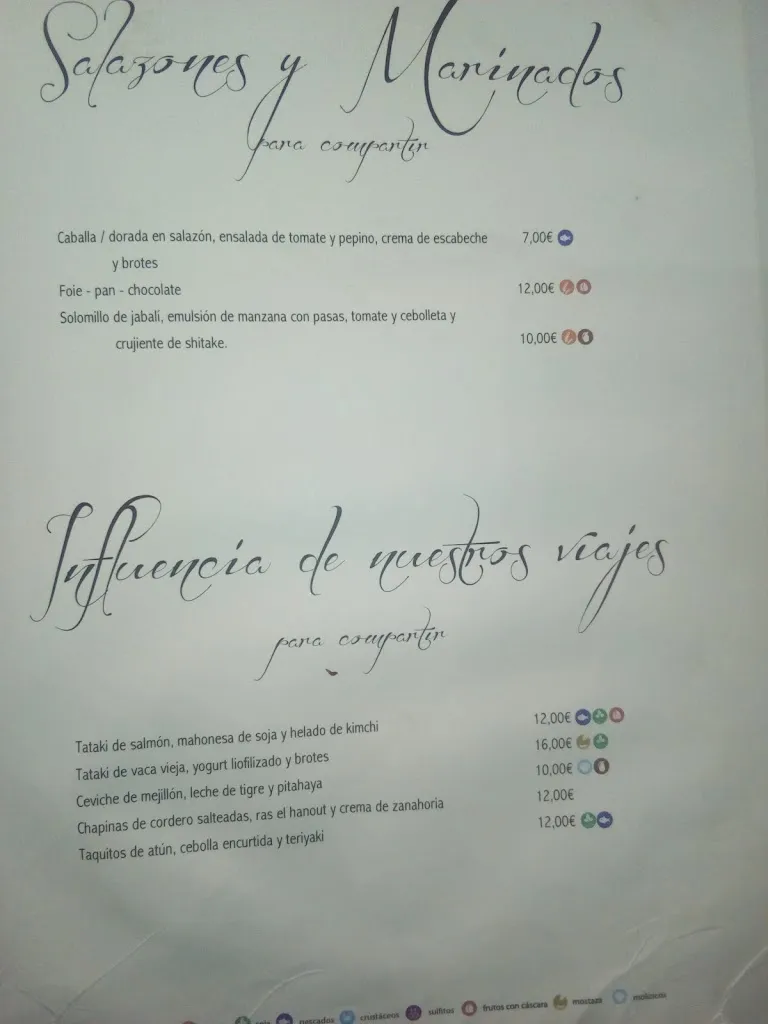 Salazones y Marinados
para compartir
Caballa / dorada en salazón, ensalada de tomate y pepino, crema de escabeche 7,00€
y brotes
Foie - pan - chocolate 12,00€
Solomillo de jabalí, emulsión de manzana con pasas, tomate y cebolleta y
crujiente de shitake. 10,00€
Influencia de nuestros viajes
para compartir
Tataki de salmón, mahonesa de soja y helado de kimchi 12,00€
Tataki de vaca vieja, yogurt liofilizado y brotes 16,00€
Ceviche de mejillón, leche de tigre y pitahaya 10,00€
Chapinas de cordero salteadas, ras el hanout y crema de zanahoria 12,00€
Taquitos de atún, cebolla encurtida y teriyaki 12,00€
soja pescados crustáceos sulfitos frutos con cáscara mostaza moluscos